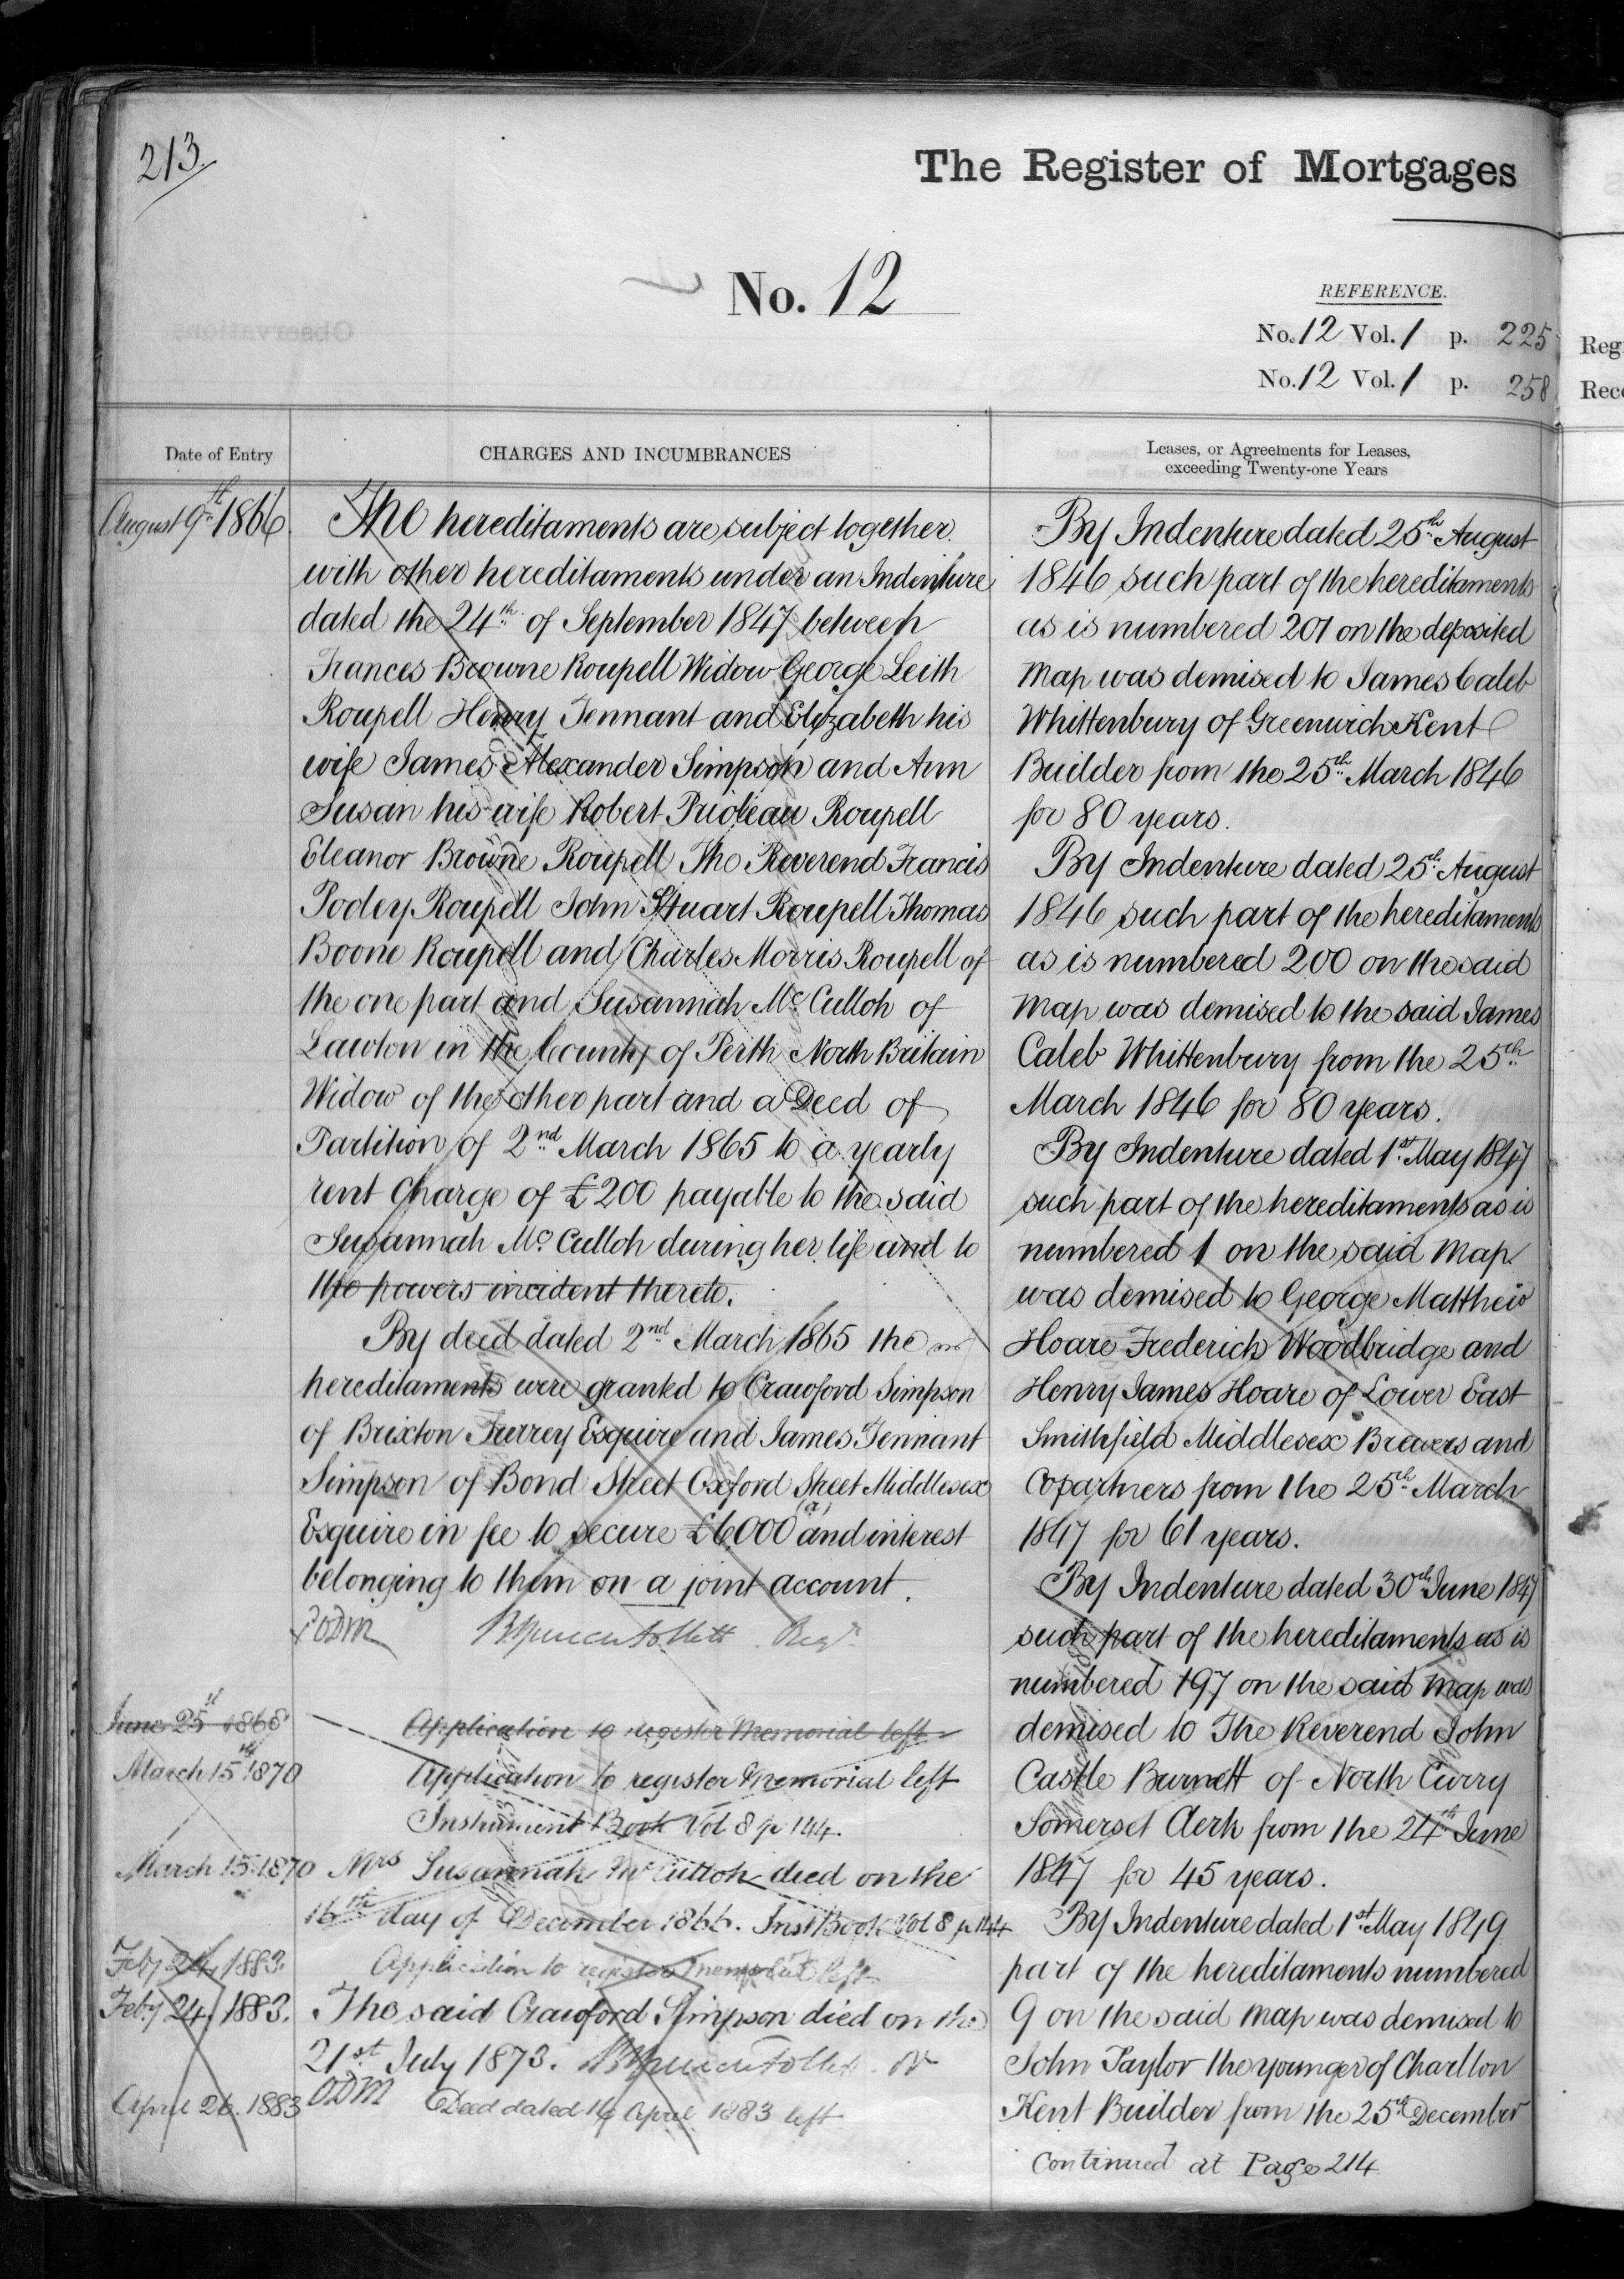 213
The Register of Mortgages
No. 12
REFERENCE.
No. 12 Vol. 1 p. 225
No. 12 Vol. 1 p. 258
Reg
Rec
Date of Entry
CHARGES AND INCUMBRANCES
Leases, or Agreements for Leases,
exceeding Twenty-one Years
August 9th 1866.
The hereditaments are subject together
with other hereditaments under an Indenture
dated the 24th of September 1847 between
Frances Browne Roupell Widow George Leith
Roupell Henry Tennant and Elizabeth his
wife James Alexander Simpson and Ann
Susan his wife Robert Prioleau Roupell
Eleanor Browne Roupell The Reverend Francis
Roupell John Stuart Roupell Thomas
Boone Roupell and Charles Morris Roupell of
the one part and Susannah Mc Culloh of
Lawton in the County of Perth North Britain
Widow of the other part and a Deed of
Partition of 2nd March 1865 to a yearly
rent charge of £200 payable to the said
Susannah Mc Culloh during her life and to
the powers incident thereto.
By deed dated 2nd March 1865 the
hereditaments were granted to Crawford Simpson
of Brixton Surrey Esquire and James Tennant
Simpson of Bond Street Oxford Street Middlesex
Esquire in fee to secure £6,000 (a) and interest
belonging to them on a joint account.
Regr
June 25th 1868
Application to register Memorial left
March 15th 1870
Application to register Memorial left
Instrument Book Vol 8 p 144.
March 15. 1870
Mrs Susannah McCulloh died on the
16th day of December 1866. Inst Book Vol 8 p 144
Feby 24, 1883.
Application to register left
Feby 24, 1883.
The said Crawford Simpson died on the
21st July 1873.
ODM
April 26. 1883
Deed dated 16 April 1883 left
By Indenture dated 25th August
1846 such part of the hereditaments
as is numbered 201 on the deposited
Map was demised to James Caleb
Whittenbury of Greenwich Kent
Builder from the 25th March 1846
for 80 years.
By Indenture dated 25th August
1846 such part of the hereditaments
as is numbered 200 on the said
Map was demised to the said James
Caleb Whittenbury from the 25th
March 1846 for 80 years.
By Indenture dated 1st May 1847
such part of the hereditaments as is
numbered 1 on the said Map
was demised to George Matthew
Hoare Frederick Woodbridge and
Henry James Hoare of Lower East
Smithfield Middlesex Brewers and
Copartners from the 25th March
1847 for 61 years.
By Indenture dated 30th June 1847
such part of the hereditaments as is
numbered 197 on the said Map was
demised to The Reverend John
Castle Burnett of North Curry
Somerset Clerk from the 24th June
1847 for 45 years.
By Indenture dated 1st May 1849
part of the hereditaments numbered
9 on the said Map was demised to
John Taylor the younger of Charlton
Kent Builder from the 25th December
Continued at Page 214